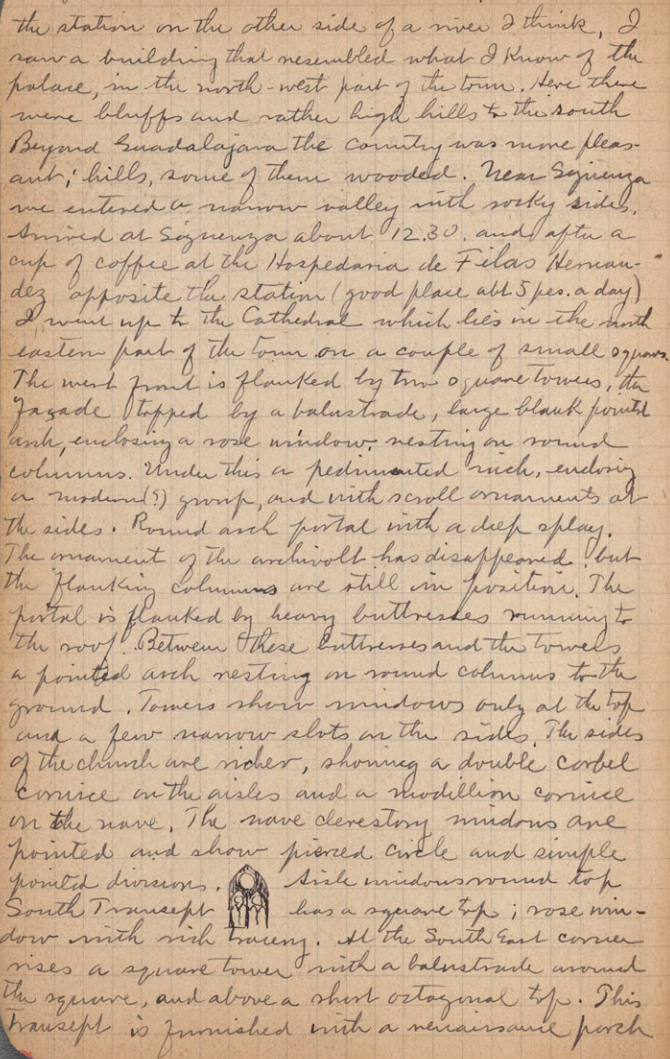 the station on the other side of a river I think, I
saw a building that resembled what I know of the
palace, in the north-west part of the town. Here there
were bluffs and rather high hills to the south
Beyond Guadalajara the country was more pleas-
ant; hills, some of them wooded. Near Siguenza
we entered a narrow valley with rocky sides.
Arrived at Siguenza about 12.30. and after a
cup of coffee at the Hospedaria de Filas Hernan-
dez opposite the station (good place abt 5 pes. a day)
I went up to the Cathedral which lies in the north
eastern part of the town on a couple of small squares.
The west front is flanked by two square towers, the
façade topped by a balustrade, large blank pointed
arch, enclosing a rose window, resting on round
columns. Under this a pedimented nich, enclosing
a modern(?) group, and with scroll ornaments at
the sides. Round arch portal with a deep splay.
The ornament of the archivolt has disappeared but
the flanking columns are still in position. The
portal is flanked by heavy buttresses running to
the roof. Between these buttresses and the towers
a pointed arch resting on round columns to the
ground. Towers show windows only at the top
and a few narrow slots on the sides. The sides
of the church are richer, showing a double corbel
cornice on the aisles and a modillion cornice
on the nave. The nave clerestory windows are
pointed and show pierced circle and simple
pointed divisions. Aisle windows round top
South Transept has a square top; rose win-
dow with rich tracery. At the South East corner
rises a square tower with a balustrade around
the square, and above a short octagonal top. This
transept is furnished with a renaissance porch